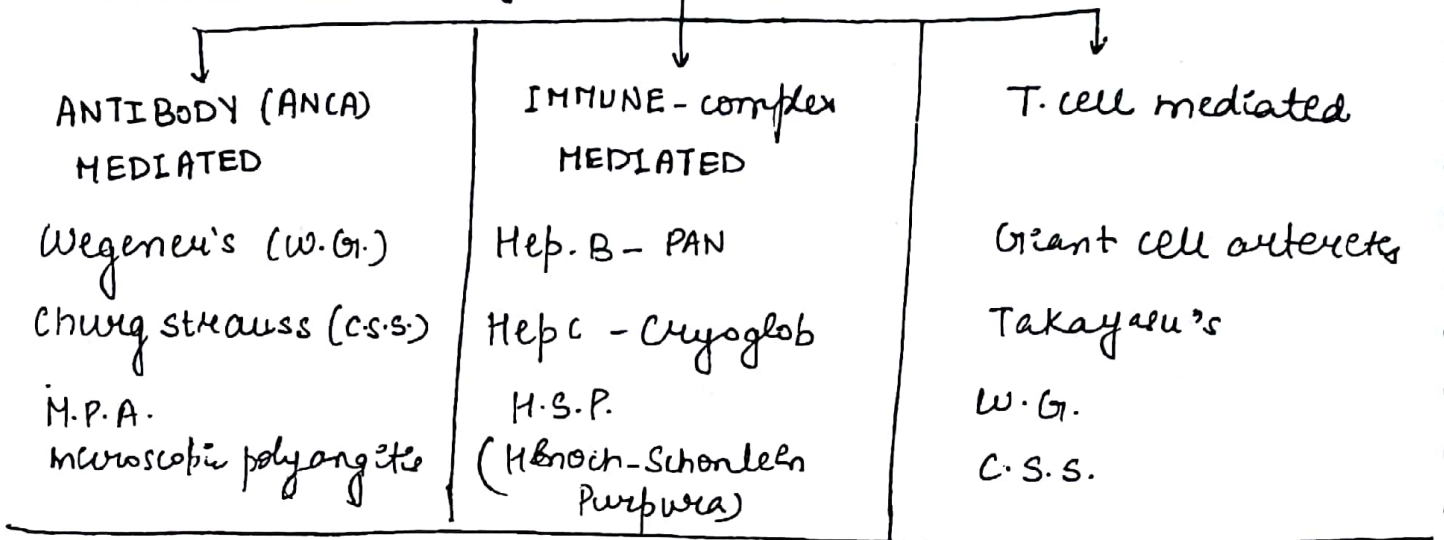 ANTIBODY (ANCA)
MEDIATED
Wegener's (W.G.)
Churg strauss (C.S.S.)
M.P.A.
microscopic polyangitis
IMMUNE - complex
MEDIATED
Hep. B - PAN
Hep C - Cryoglob
H.S.P.
(Henoch-Schonlein
Purpura)
T. cell mediated
Giant cell arteretis
Takayasu's
W.G.
C.S.S.